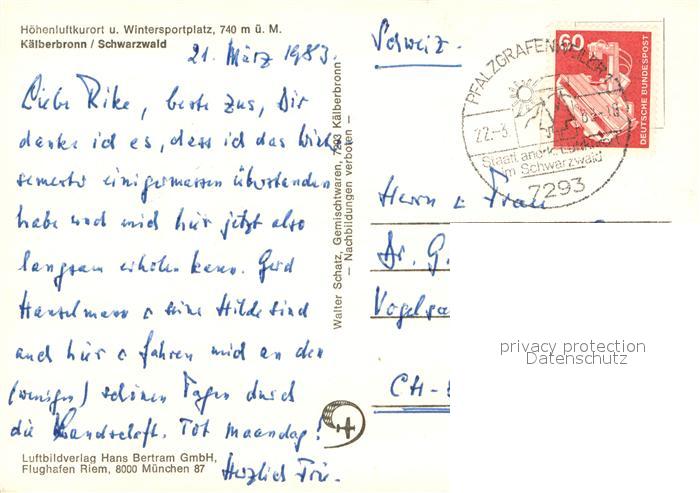 Höhenluftkurort u. Wintersportplatz, 740 m ü. M.
Kälberbronn / Schwarzwald
21. März 1983.
Liebe Rike, beste Zus, Dir
danke ich es, dass ich das Winter
semester einigermassen überstanden
habe und mich hier jetzt also
langsam erholen kann. Gerd
Hanselmann & seine Hilde sind
auch hier & fahren mich an den
(wenigen) schönen Tagen durch
die Landschaft. Tot maandag!
Herzlich
Luftbildverlag Hans Bertram GmbH,
Flughafen Riem, 8000 München 87
Walter Schatz, Gemischtwaren, 7293 Kälberbronn
— Nachbildungen verboten —
Schweiz.
60
DEUTSCHE BUNDESPOST
PFALZGRAFENWEILER
22.-3.
Staatl. anerk. Luftkurort
im Schwarzwald
7293
Herrn & Frau
Dr. G.
CH-
privacy protection
Datenschutz